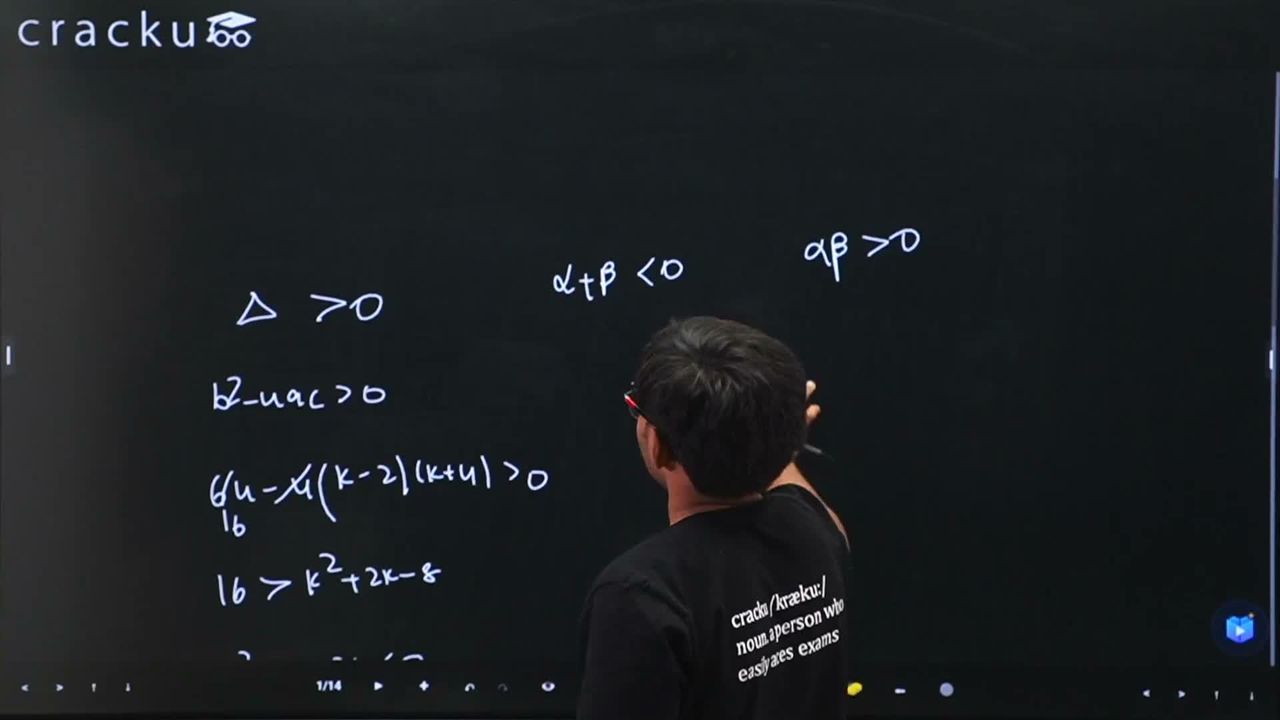 cracku
Δ > 0
α+β < 0
αβ > 0
b²-4ac > 0
64 - 4(k-2)(k+4) > 0
16
16 > k²+2k-8
cracku /kræku:/
noun. a person who
easily aces exams
1/14